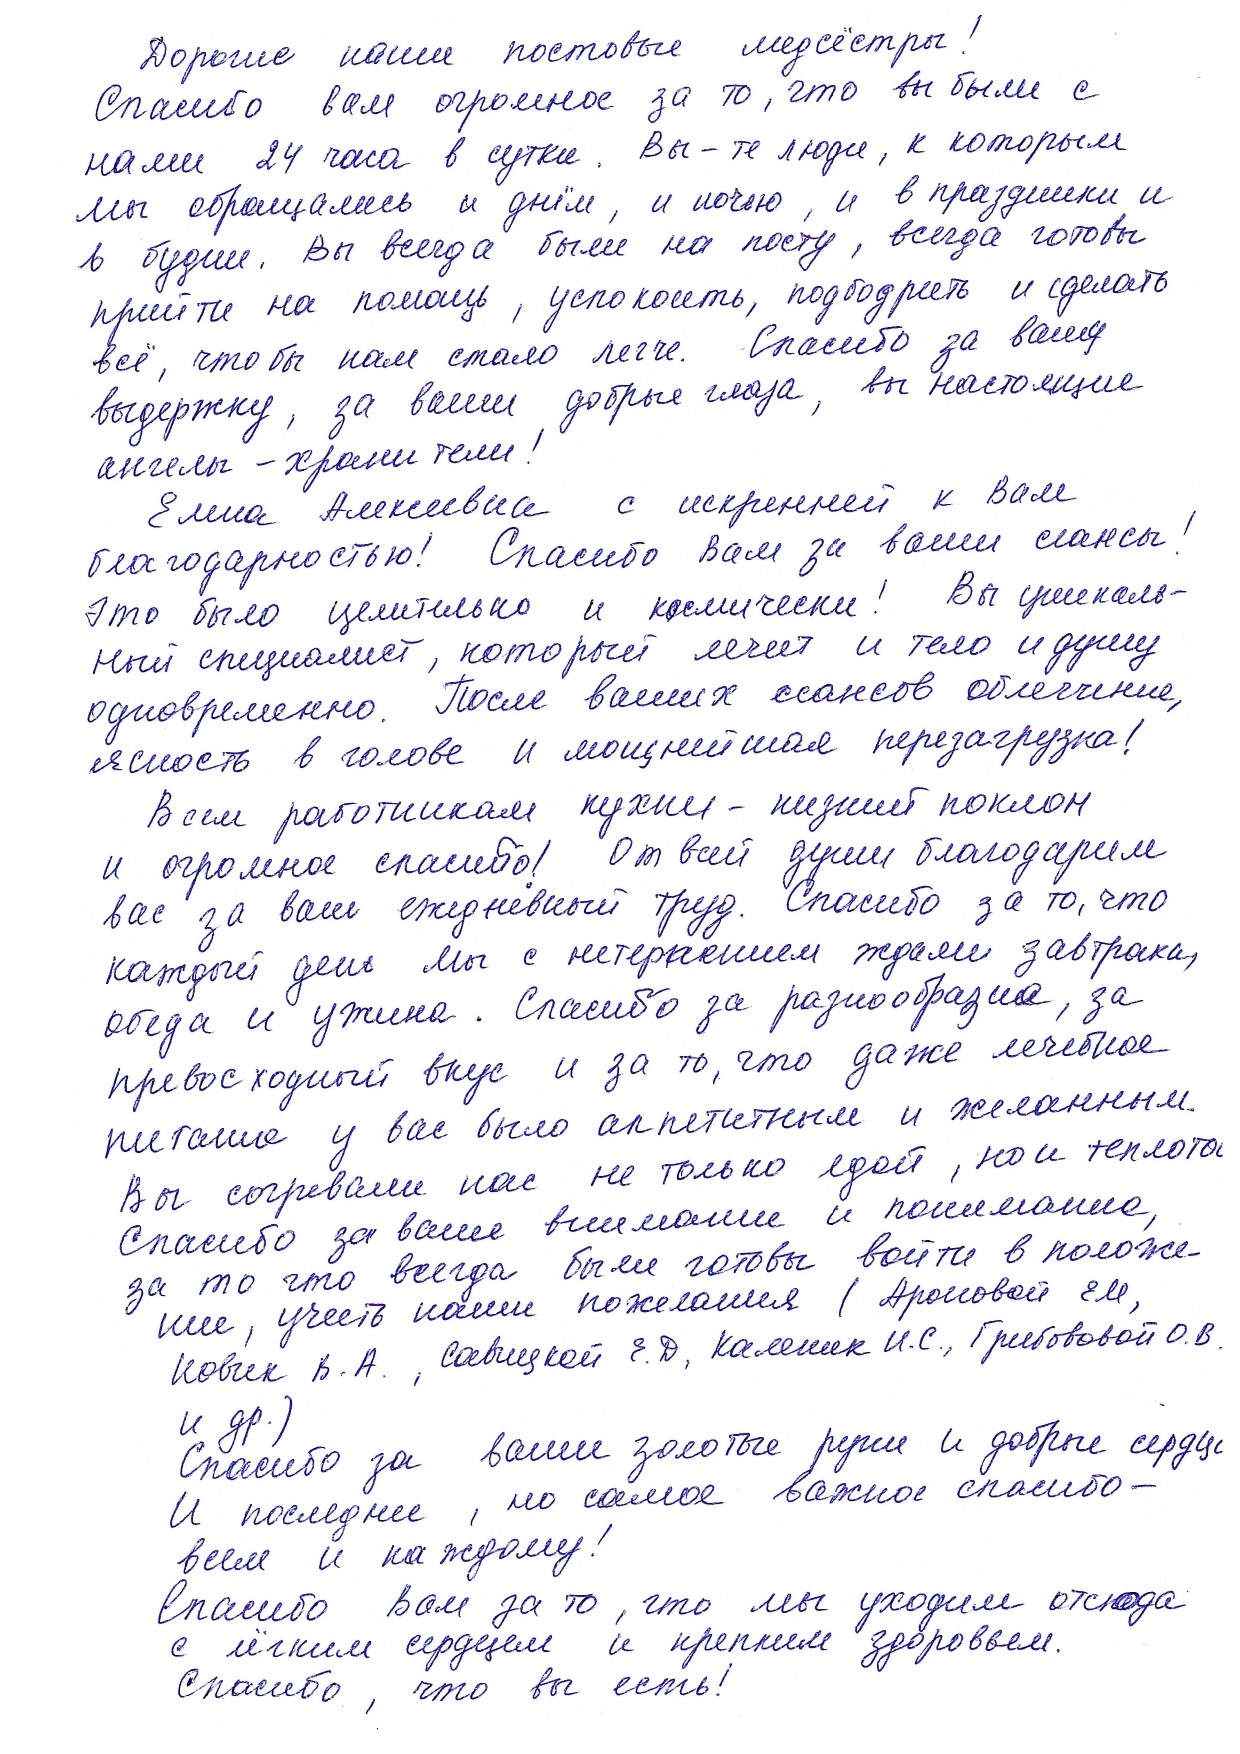 Дорогие наши постовые медсёстры!
Спасибо вам огромное за то, что вы были с
нами 24 часа в сутки. Вы - те люди, к которым
мы обращались и днём, и ночью, и в праздники и
в будни. Вы всегда были на посту, всегда готовы
прийти на помощь, успокоить, подбодрить и сделать
всё, чтобы нам стало легче. Спасибо за вашу
выдержку, за ваши добрые глаза, вы настоящие
ангелы - хранители!
Елена Алексеевна с искренней к Вам
благодарностью! Спасибо Вам за ваши сеансы!
Это было целительно и космически! Вы уникаль-
ный специалист, который лечит и тело и душу
одновременно. После ваших сеансов облегчение,
ясность в голове и мощнейшая перезагрузка!
Всем работникам кухни - низкий поклон
и огромное спасибо! От всей души благодарим
вас за ваш ежедневный труд. Спасибо за то, что
каждый день мы с нетерпением ждали завтрака,
обеда и ужина. Спасибо за разнообразие, за
превосходный вкус и за то, что даже лечебное
питание у вас было аппетитным и желанным.
Вы согревали нас не только едой, но и теплотой
Спасибо за ваше внимание и понимание,
за то что всегда были готовы войти в положе-
ние, учесть наши пожелания ( Ароновой Е.М,
Новик В.А., Савицкой Е.Д, Каленик И.С., Грибововой О.В.
и др.)
Спасибо за ваши золотые руки и добрые сердца
И последнее, но самое важное спасибо -
всем и каждому!
Спасибо Вам за то, что мы уходим отсюда
с лёгким сердцем и крепким здоровьем.
Спасибо, что вы есть!